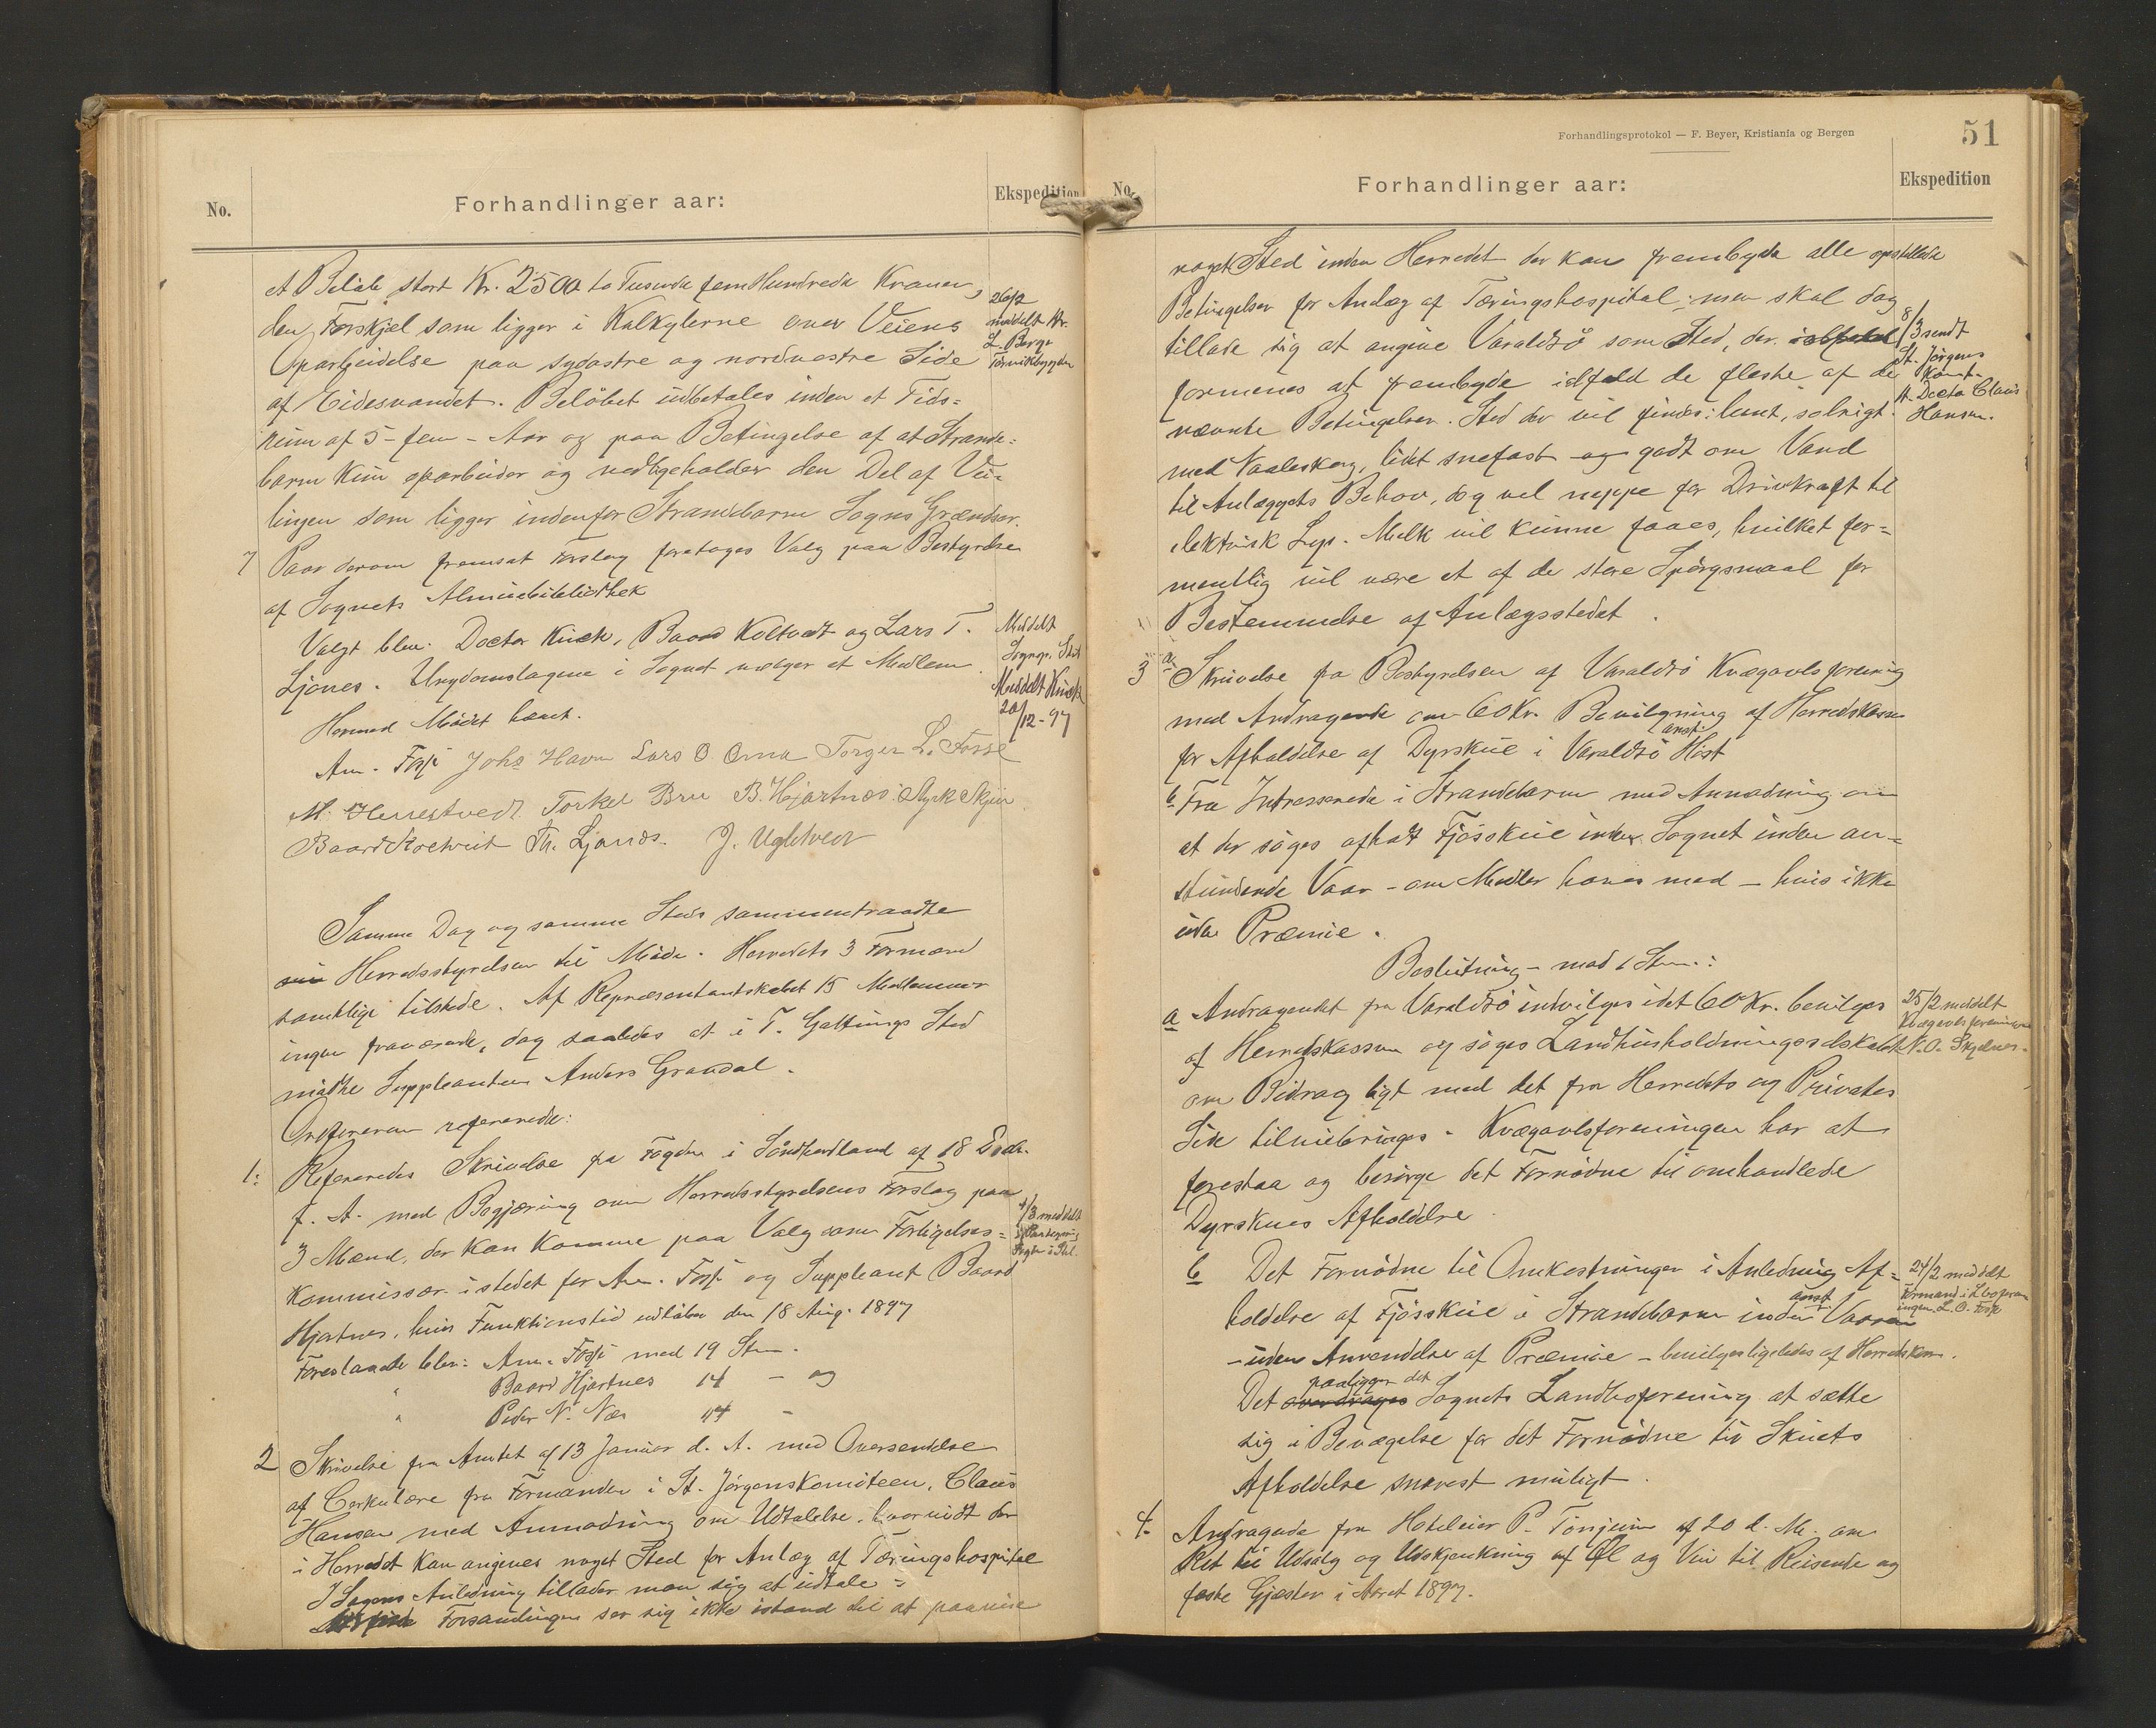 No.
Forhandlinger aar:
Ekspedition
et Beløb stort Kr. 2500 to Tusende fem Hundrede Kroner,
den Forskjel som ligger i Kalkylerne over Veiens
Oparbeidelse paa sydøstre og nordvestre Side
af Eidesvandet. Beløbet udbetales inden et Tids-
rum af 5 - fem - Aar og paa Betingelse af at Strande-
barm Kun oparbeider og vedligeholder den Del af Vei-
lingen som ligger indenfor Strandebarm Sogns Grændser.
26/2
meddelt Hr.
L. Berge
Tørvikbygden
7 Paa derom fremsat Forslag foretoges Valg paa Bestyrelse
af Sognets Almuebibliothek
Valgt blev: Doctor Kinck, Baard Koltvedt og Lars T.
Ljones. Ungdomslagene i Sognet vælger et Medlem.
Hermed Mødet hævet.
Meddelt
Sognepr.
Meddelt Kinck
20/12-97
Am. Fosse Johs Havn Lars O Oma Torger L. Fosse
M. Herrestvedt Torkel Bru B. Hjartnes Styrk Skjer
Baard Koltveit Th. Ljones. J. Ugletveit
Samme Dag og samme Sted sammentraadte
Herredsstyrelsen til Møde. Herredets 3 Formænd
samtlige tilstede. Af Repræsentantskabet 15 Medlemmer
ingen fraværende, dog saaledes at i T. Galtungs Sted
mødte Suppleanten Anders Graadal.
Ordføreren refererede:
1: Refereredes Skrivelse fra Fogden i Søndhordland af 18 Decbr.
f. A. med Begjæring om Herredsstyrelsens Forslag paa
3 Mænd, der kan komme paa Valg som Forligelses-
kommissær istedet for Am. Fosse og Suppleant Baard
Hjartnes, hvis Funktionstid udløber den 18 Aug. 1897
Foreslaaede blev: Am. Fosse med 19 Stm.
" Baard Hjartnes 14 - og
" Peder N. Næs 14 -
/3 meddelt
2 Skrivelse fra Amtet af 13 Januar d. A. med Oversendelse
af Cerkulære fra Formanden i St. Jørgenskomiteen, Claus
Hansen med Anmodning om Udtalelse, hvorvidt der
i Herredet kan angives noget Sted for Anlæg af Tæringshospital
I Sagens Anledning tillader man sig at udtale:
Forsamlingen ser sig ikke istand til at paavise
Forhandlingsprotokol — F. Beyer, Kristiania og Bergen
51
No.
Forhandlinger aar:
Ekspedition
noget Sted inden Herredet der kan frembyde alle opstillede
Betingelser for Anlæg af Tæringshospital; men skal dog
tillade sig at angive Varaldsø som Sted, der ialfald
formenes at frembyde ialfald de fleste af de
nævnte Betingelser. Sted der vil findes: lunt, solrigt
med Naaleskog, lidet snefast og godt om Vand
til Anlæggets Behov, dog vel neppe for Drivkraft til
elektrisk Lys. Melk vil kunne faaes, hvilket for-
mentlig vil være et af de store Spørgsmaal for
Bestemmelse af Anlægsstedet.
8/3 sendt
St. Jørgens
Komt.
Doctor Claus
Hansen.
3 a Skrivelse fra Bestyrelsen af Varaldsø Kvægavlsforening
med Andragende om 60 Kr. Bevilgning af Herredskassen
for Afholdelse af Dyrskue i Varaldsø anst. Høst
b Fra Intresserede i Strandebarm med Anmodning om
at der søges afholdt Fjøsskue inden Sognet inden an-
stundende Vaar - om Midler haves med - hvis ikke
uden Præmie.
Beslutning - med 1 Stm.:
a Andragendet fra Varaldsø indvilges idet 60 Kr. bevilges
af Herredskassen og søges Landhusholdningsselskabet
om Bidrag ligt med det fra Herredets og Privates
Side tilveiebringes. Kvægavlsforeningen har at
forestaa og besørge det Fornødne til omhandlede
Dyrskues Afholdelse.
25/2 meddelt
Kvægavlsforeningen
N. O. Skjelnes.
b Det Fornødne til Omkostninger i Anledning Af-
holdelse af Fjøsskue i Strandebarm inden anst. Vaar
- uden Anvendelse af Præmie - bevilges ligeledes af Herredskassen.
Det overdrages paaligger det Sognets Landboforening at sætte
sig i Bevægelse for det Fornødne til Skuets
Afholdelse snarest muligt.
24/2 meddelt
Formand i Lboforen-
ingen L. O. Fosse
4. Andragende fra Hoteleier P. Tonjum af 20 d. M. om
Ret til Udsalg og Udskjænkning af Øl og Vin til Reisende og
faste Gjæster i Aaret 1897.